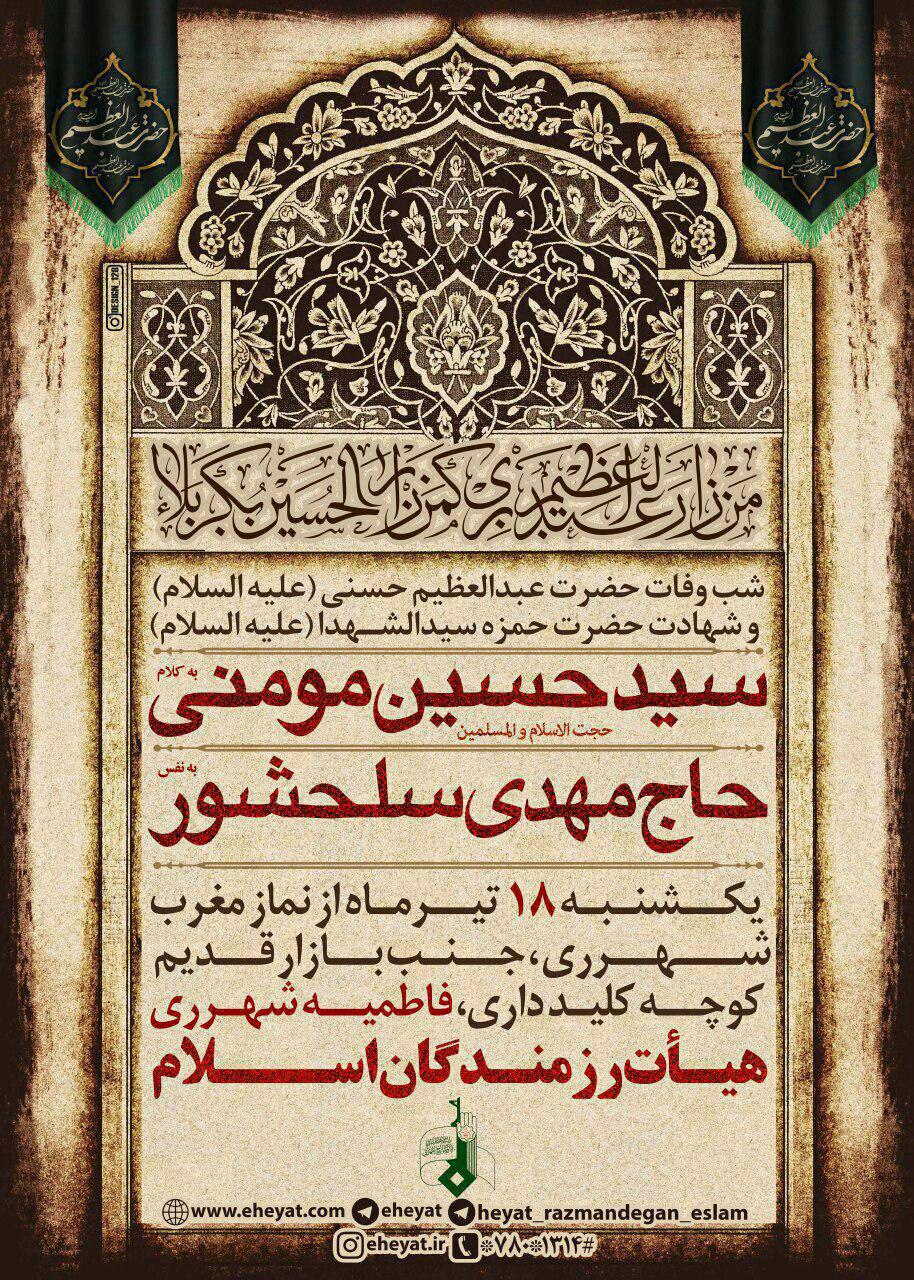 حضرت عبدالعظیم
حضرت عبدالعظیم
DESIGN_128
مَن زارَ عَبدَالعَظیم بِرَی کَمَن زارَ الحُسَین بِکَربَلاء
شب وفات حضرت عبدالعظیم حسنی (علیه السلام)
و شهادت حضرت حمزه سیدالشهدا (علیه السلام)
به کلام
سید حسین مومنی
حجت الاسلام و المسلمین
به نفس
حاج مهدی سلحشور
یکشنبه ۱۸ تیر ماه از نماز مغرب
شهر ری، جنب بازار قدیم
کوچه کلید داری، فاطمیه شهر ری
هیأت رزمندگان اسلام
www.eheyat.com eheyat heyat_razmandegan_eslam
eheyat.ir *۷۸۰*۱۳۱۴#